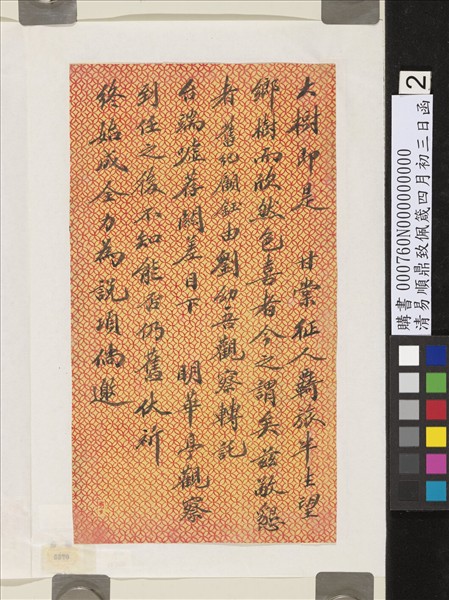 大樹即是 甘棠征人羇旅半生望
鄉樹而欣然色喜者今之謂矣茲敬懇
者舊化顧釭由劉幼吾觀察轉託
台端嘘荐關差目下 明華亭觀察
到任之後不知能否仍舊伏祈
終始成全力為說項倘邀
購書 000760N000000000
清易順鼎致佩箴四月初三日函
2